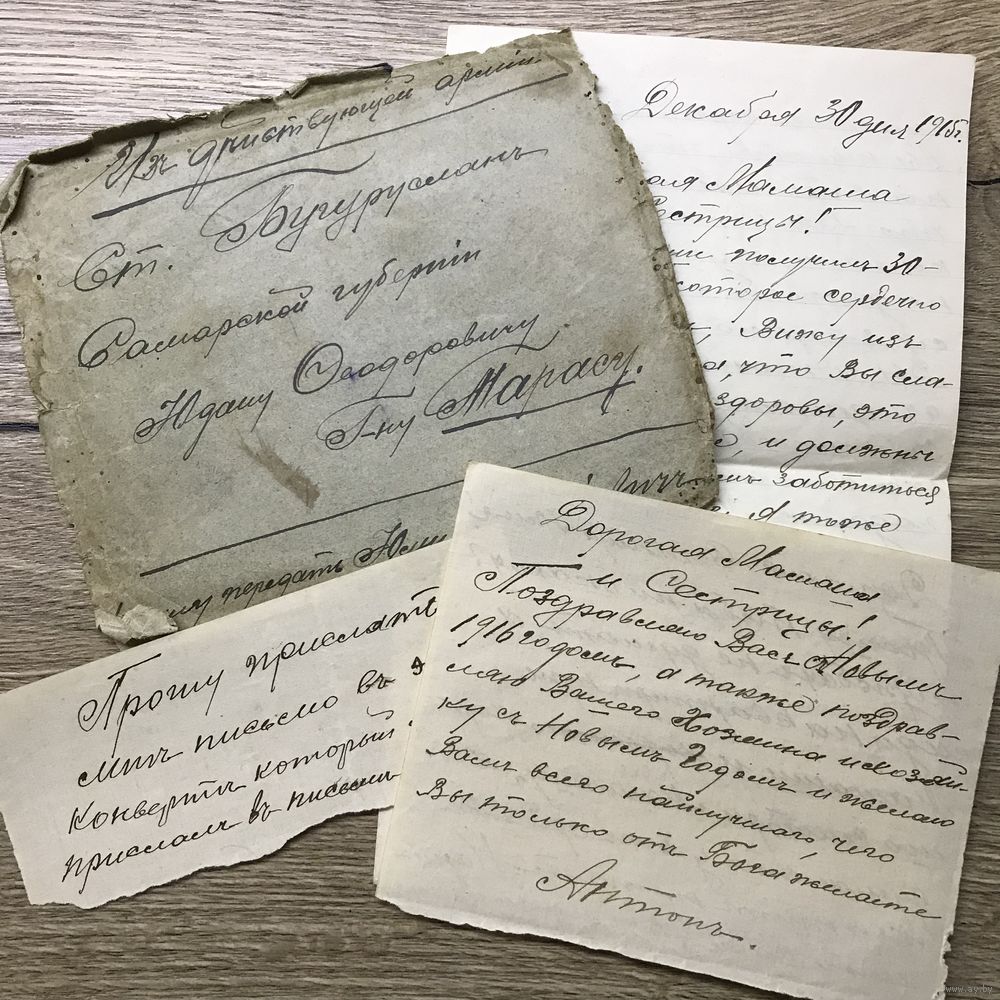 Изъ действующей армiи.
Ст. Бугурусланъ
Самарской губернiи
Юдашу Ѳеодоровичу
Г-ну Марасу.
передать
Декабря 30 дня 1915 г.
Мамаша
Сестрицы!
получилъ 30-
которое сердечно
Вижу изъ
что Вы сла-
здоровы, это
и должны
заботиться
Я тоже
Прошу прислать
мнѣ письмо въ
конвертѣ который
прислалъ въ письмѣ
Дорогая Мамаша
и Сестрицы!
Поздравляю Васъ с Новымъ
1916 годомъ, а также поздрав-
ляю Вашего Хозяина и хозяй-
ку съ Новымъ Годомъ и желаю
Вамъ всего наилучшаго, чего
Вы только отъ Бога желаете
Антонъ.
www.ay.by